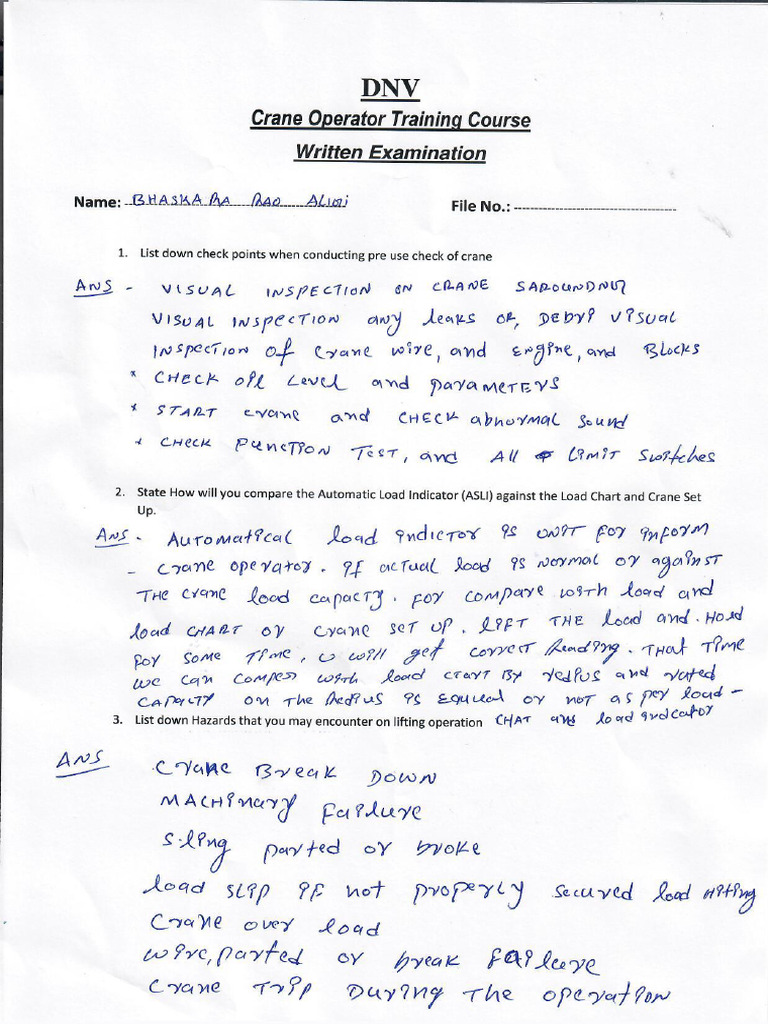 DNV
Crane Operator Training Course
Written Examination
Name: BHASKARA RAO ALIDI File No.:
1. List down check points when conducting pre use check of crane
ANS - VISUAL INSPECTION ON CRANE SAROUNDNG
VISUAL INSPECTION any leaks or, DEBRI VISUAL
INSPECTION OF crane wire, and engine, and BLOCKS
* CHECK OIL Level and parameters
* START crane and CHECK abnormal sound
* CHECK FUNCTION TEST, and All LIMIT Switches
2. State How will you compare the Automatic Load Indicator (ASLI) against the Load Chart and Crane Set
Up.
ANS - AUTOMATICAL load indictor is UNIT FOR inform
- crane operator. if actual load is normal or against
THE crane load capacty. for compare with load and
load CHART or crane SET UP. LIFT THE load and. Hold
for some TIME, U will get correct Reading. THAT TIME
we can compes with load CTART BY redius and rated
CAPACTY ON THE Redius is EQUEAL or not as per load -
3. List down Hazards that you may encounter on lifting operation CHAT and load indecator
ANS Crane Break DOWN
MACHinary failure
Sling parted or broke
load slip if not properly secured load Hiting
Crane over load
wire, parted or break failure
Crane Trip During The operation